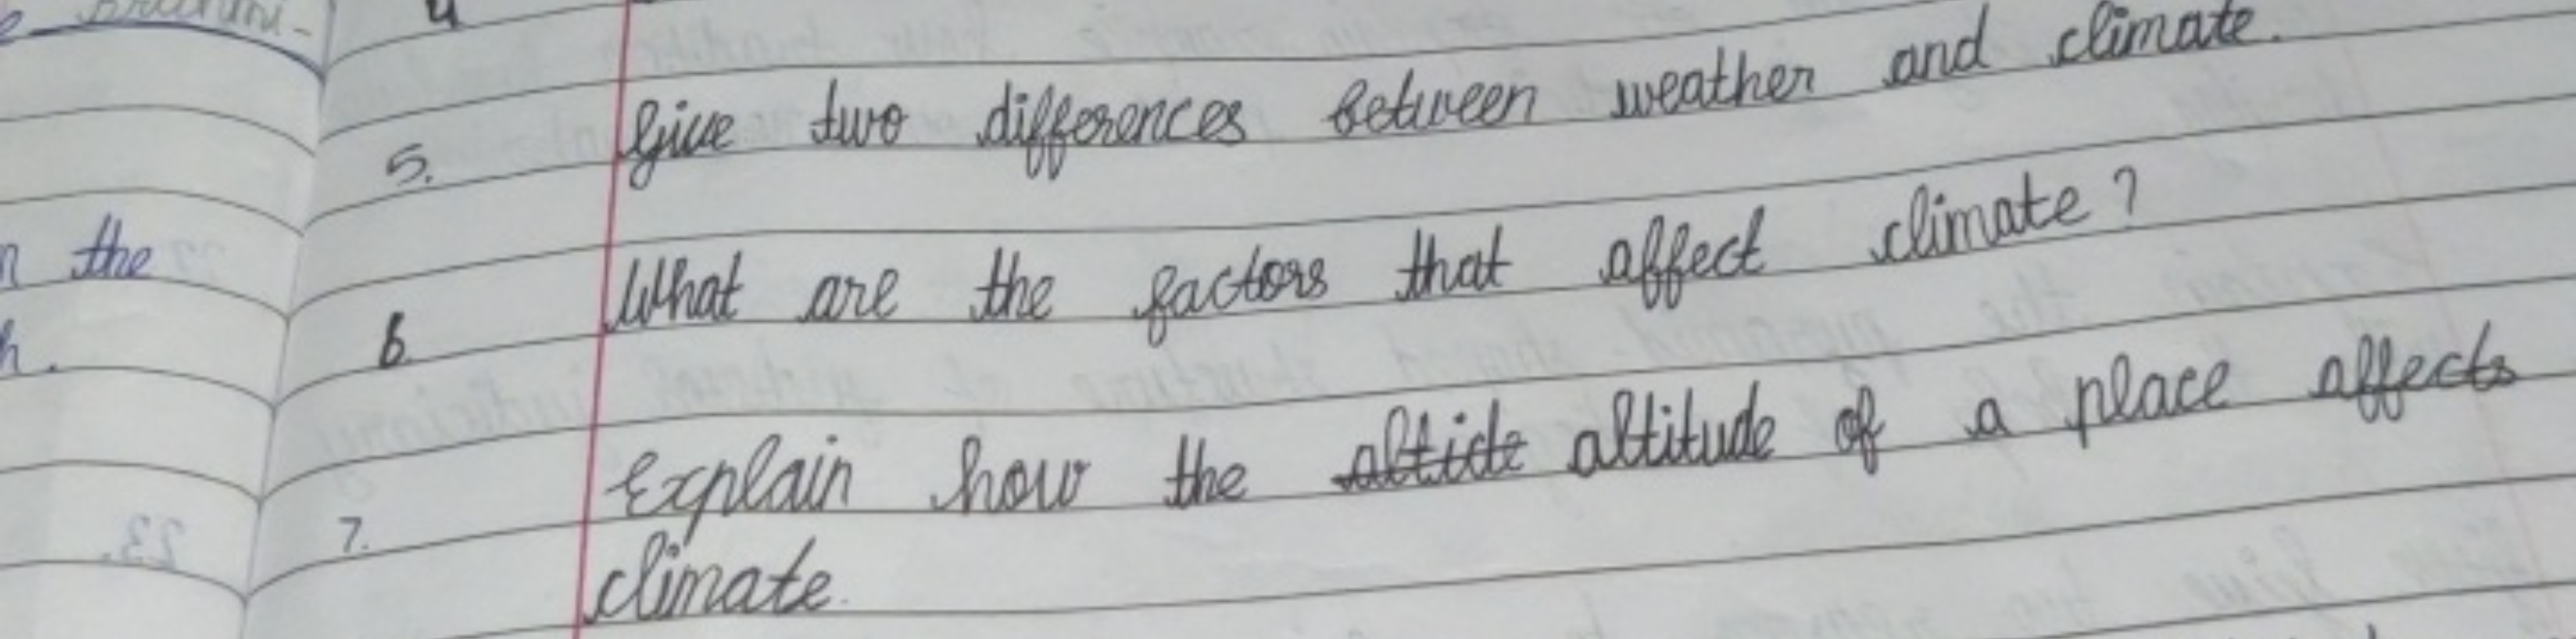 5. Give two differences between weather and climate.
6. What are the factors that affect climate?
7. Explain how the altitude of a place affects
climate.
n the
h.
23.